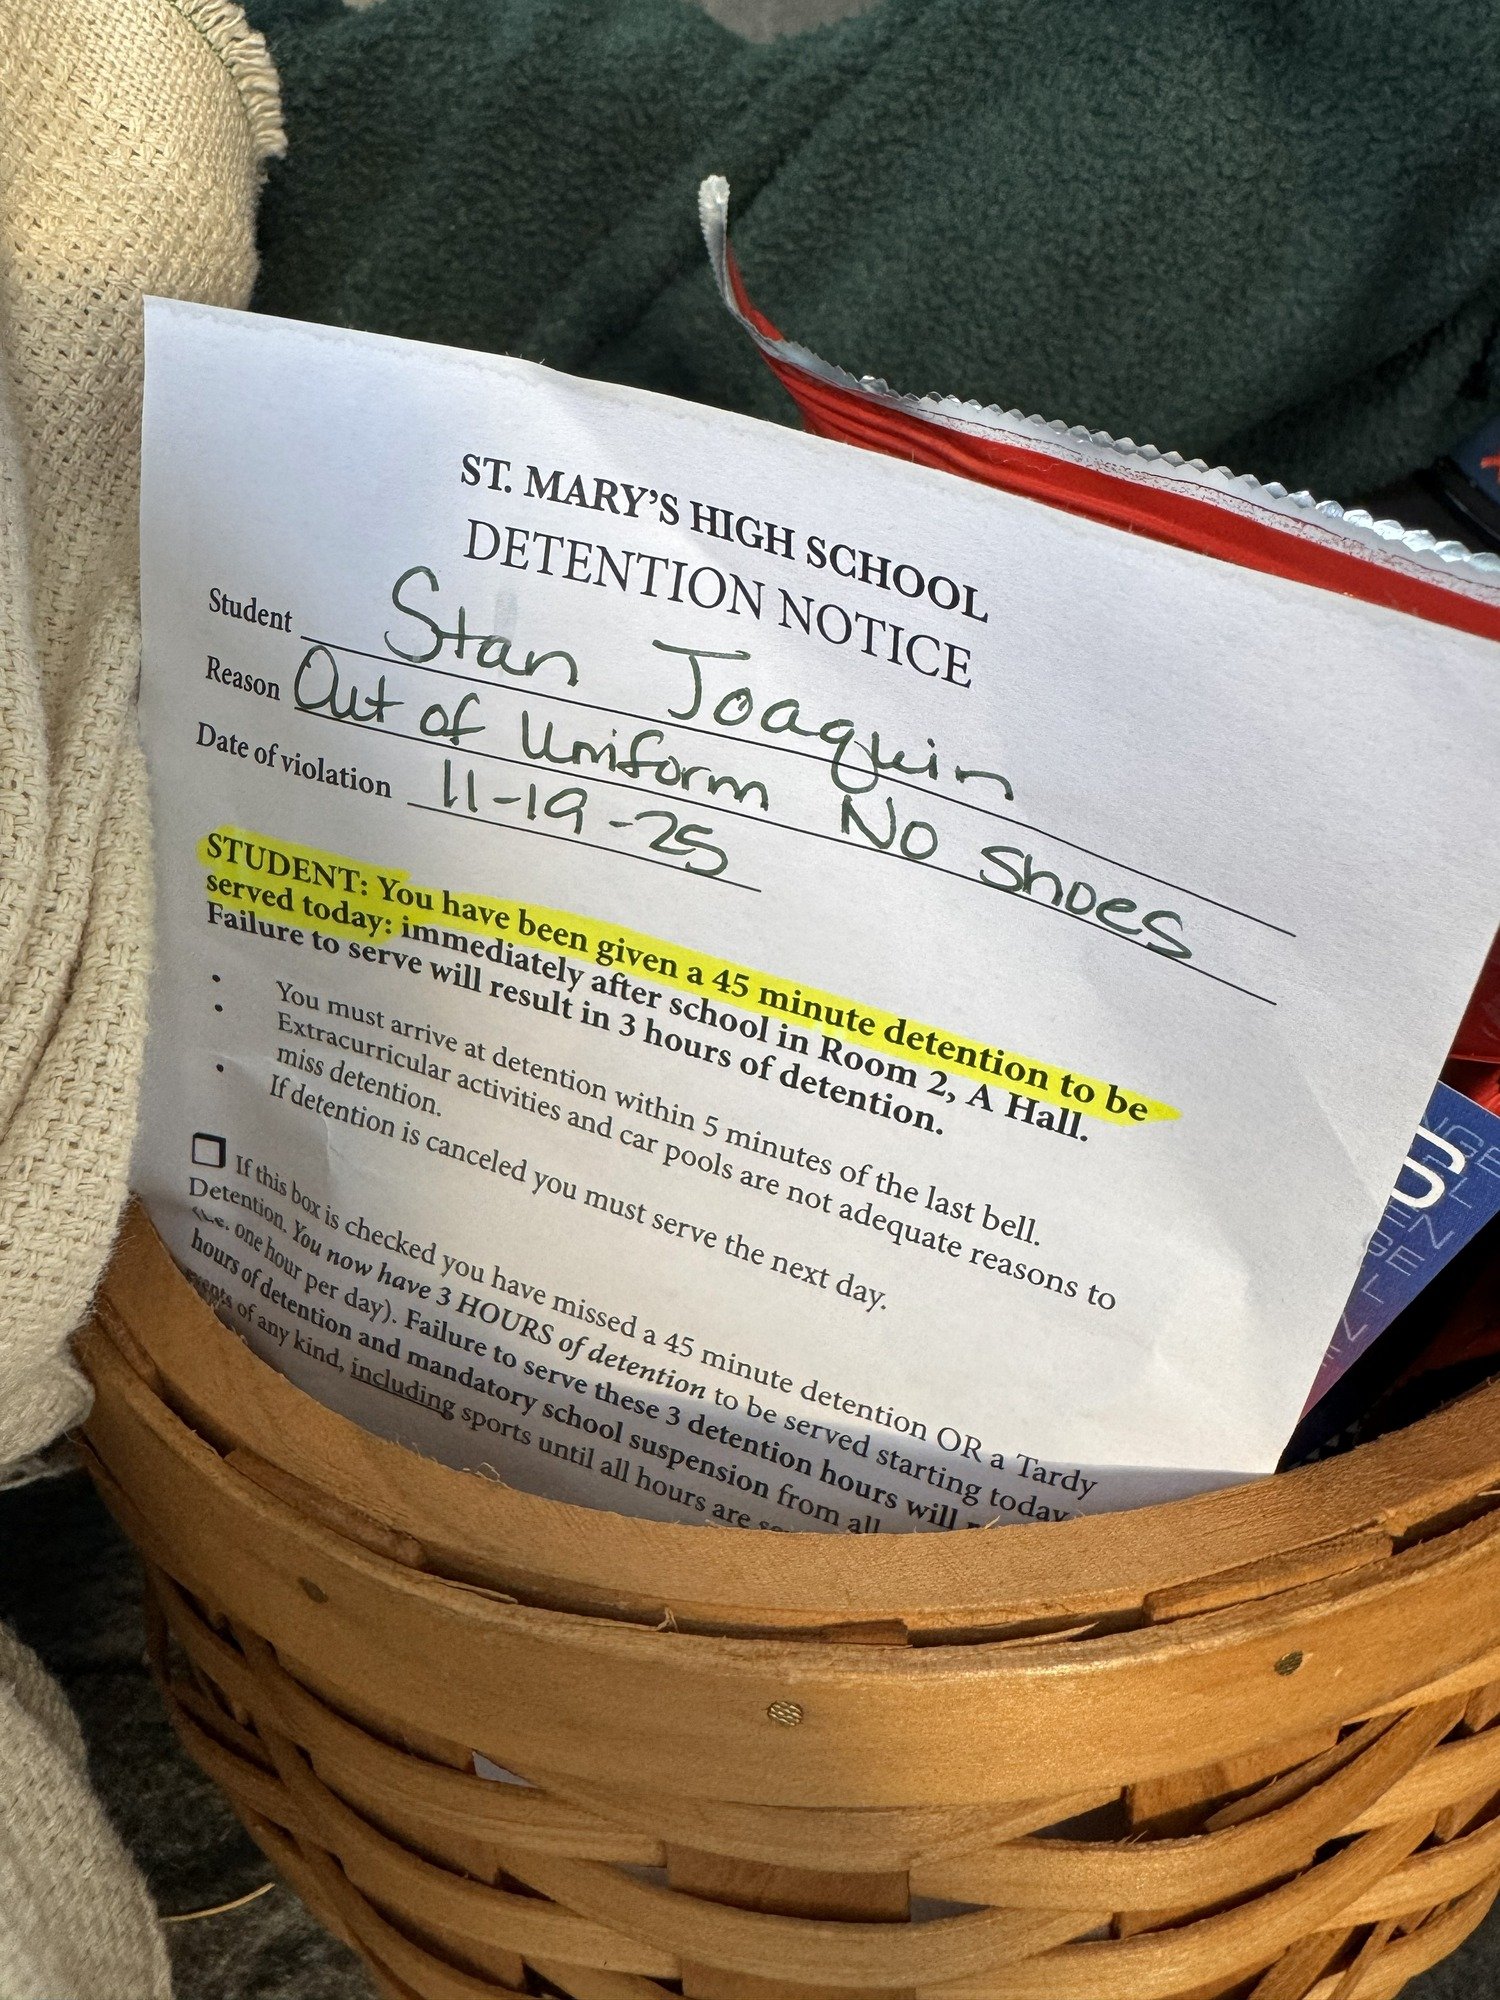 ST. MARY'S HIGH SCHOOL
DETENTION NOTICE
Student Stan Joaquin
Reason Out of Uniform No Shoes
Date of violation 11-19-25
STUDENT: You have been given a 45 minute detention to be
served today: immediately after school in Room 2, A Hall.
Failure to serve will result in 3 hours of detention.
• You must arrive at detention within 5 minutes of the last bell.
• Extracurricular activities and car pools are not adequate reasons to
miss detention.
• If detention is canceled you must serve the next day.
If this box is checked you have missed a 45 minute detention OR a Tardy
Detention. You now have 3 HOURS of detention to be served starting today
(i.e. one hour per day). Failure to serve these 3 detention hours will
hours of detention and mandatory school suspension from all
of any kind, including sports until all hours are